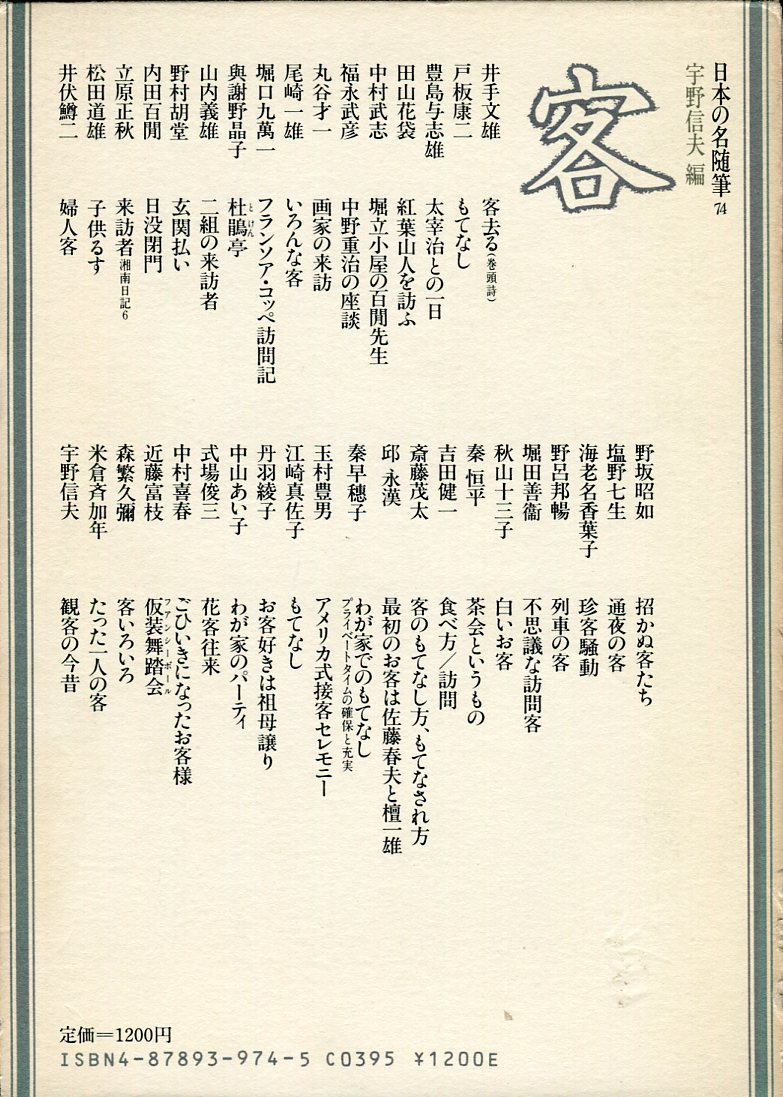 日本の名随筆 74
宇野信夫 編
客
井手文雄 客去る(巻頭詩)
戸板康二 もてなし
豊島与志雄 太宰治との一日
田山花袋 紅葉山人を訪ふ
中村武志 堀立小屋の百閒先生
福永武彦 中野重治の座談
丸谷才一 画家の来訪
尾崎一雄 いろんな客
堀口九萬一 フランソア・コッペ訪問記
與謝野晶子 杜鵑亭
とけん
山内義雄 二組の来訪者
野村胡堂 玄関払い
内田百閒 日没閉門
立原正秋 来訪者 湘南日記6
松田道雄 子供るす
井伏鱒二 婦人客
野坂昭如 招かぬ客たち
塩野七生 通夜の客
海老名香葉子 珍客騒動
野呂邦暢 列車の客
堀田善衞 不思議な訪問客
秋山十三子 白いお客
秦 恒平 茶会というもの
吉田健一 食べ方/訪問
斎藤茂太 客のもてなし方、もてなされ方
邱 永漢 最初のお客は佐藤春夫と檀一雄
秦早穗子 わが家でのもてなし
プライベートタイムの確保と充実
玉村豊男 アメリカ式接客セレモニー
江崎真佐子 もてなし
丹羽綾子 お客好きは祖母譲り
中山あい子 わが家のパーティ
式場俊三 花客往来
中村喜春 ごひいきになったお客様
近藤富枝 仮装舞踏会
ファンシーボール
森繁久彌 客いろいろ
米倉斉加年 たった一人の客
宇野信夫 観客の今昔
定価=1200円
ISBN4-87893-974-5 C0395 ¥1200E